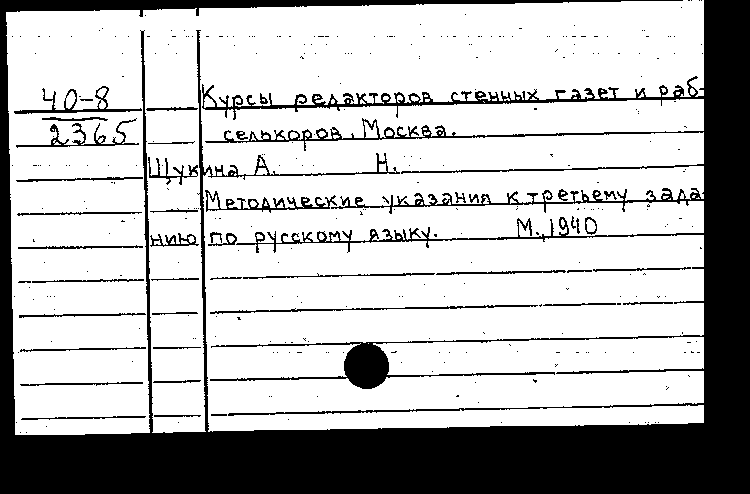 40-8
2365
Курсы редакторов стенных газет и раб-
селькоров. Москва.
Щукина, А. Н.
Методические указания к третьему зада-
нию по русскому языку. М., 1940